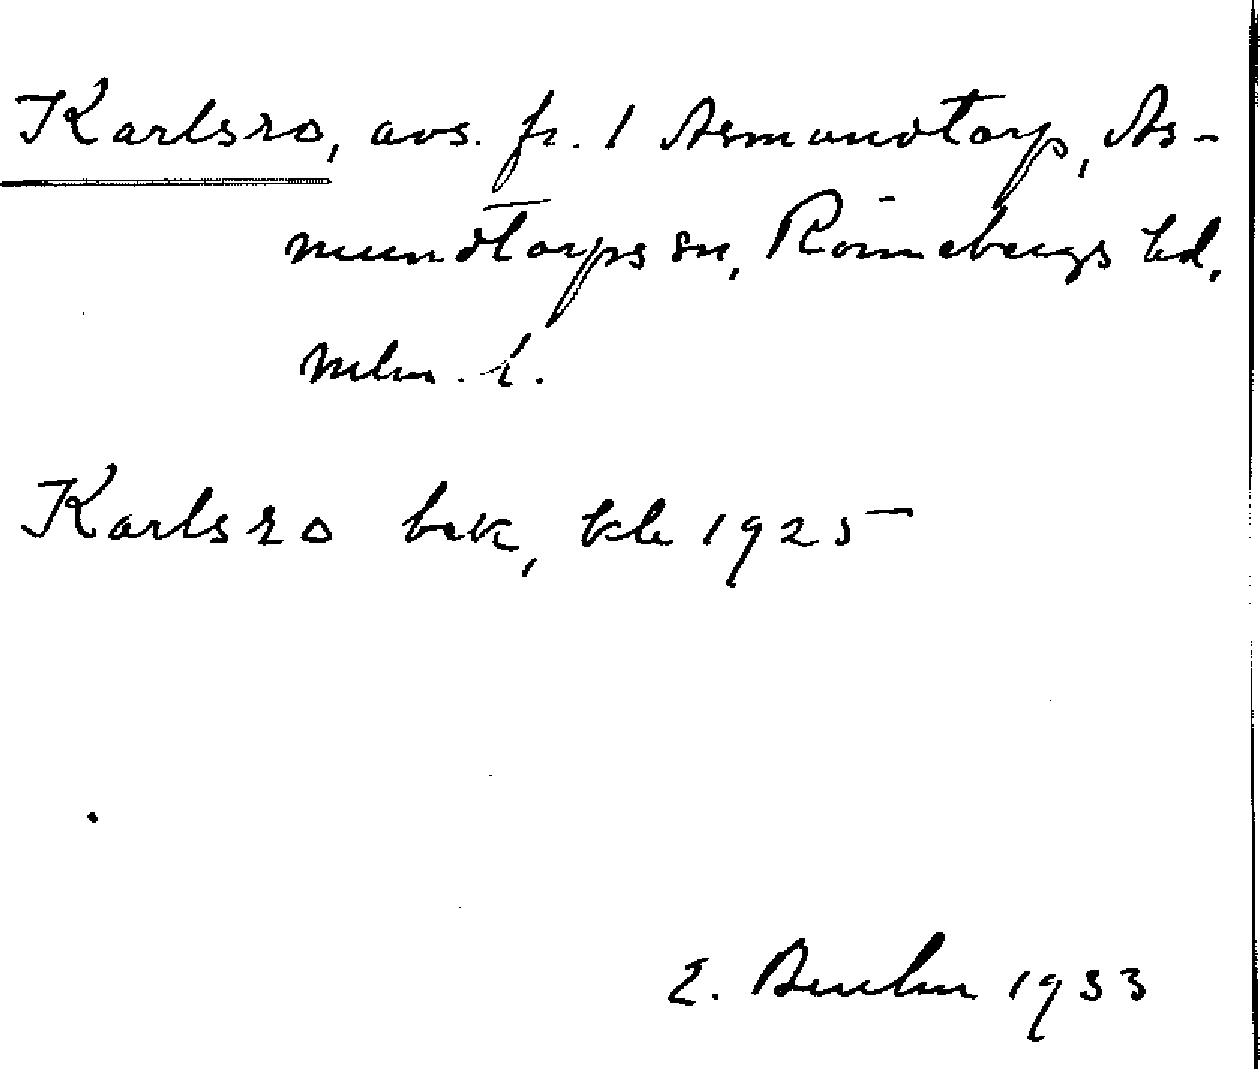 Karlsro, avs. fr. 1 Asmundtorp, As-
mundtorps sn, Rönnebergs hd,
Mlm. l.
Karlsro bsk, kk 1925
1933